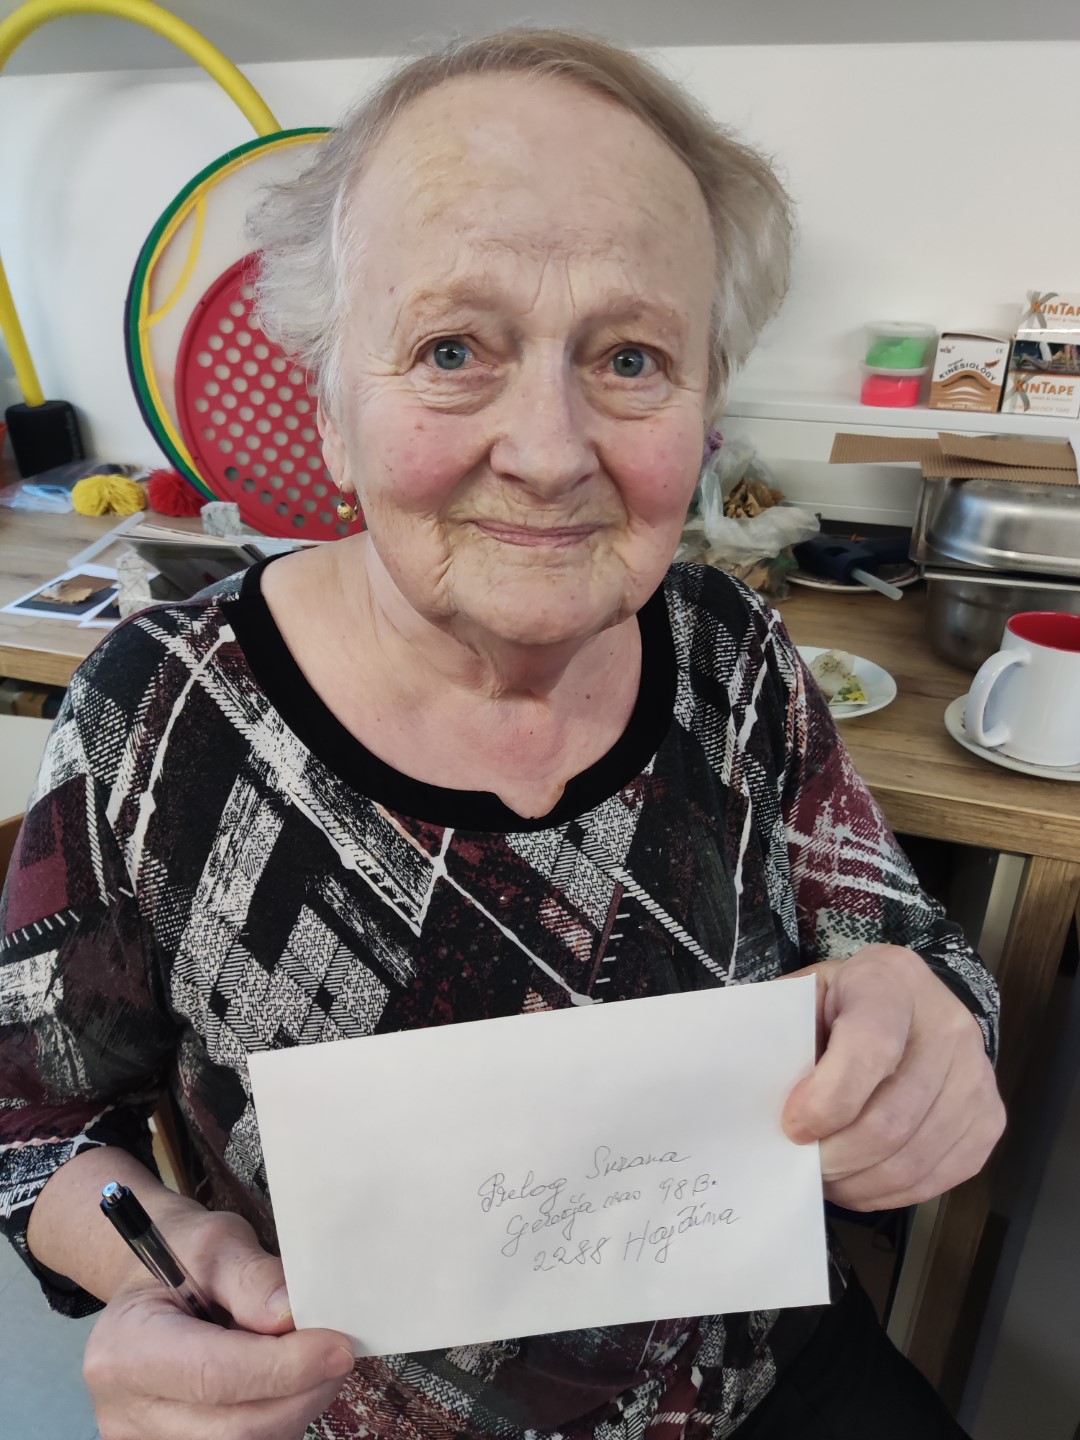 KINTAPE
KINESIOLOGY
KINTAPE
Prelog Suzana
Gerečja vas 98 B.
2288 Hajdina